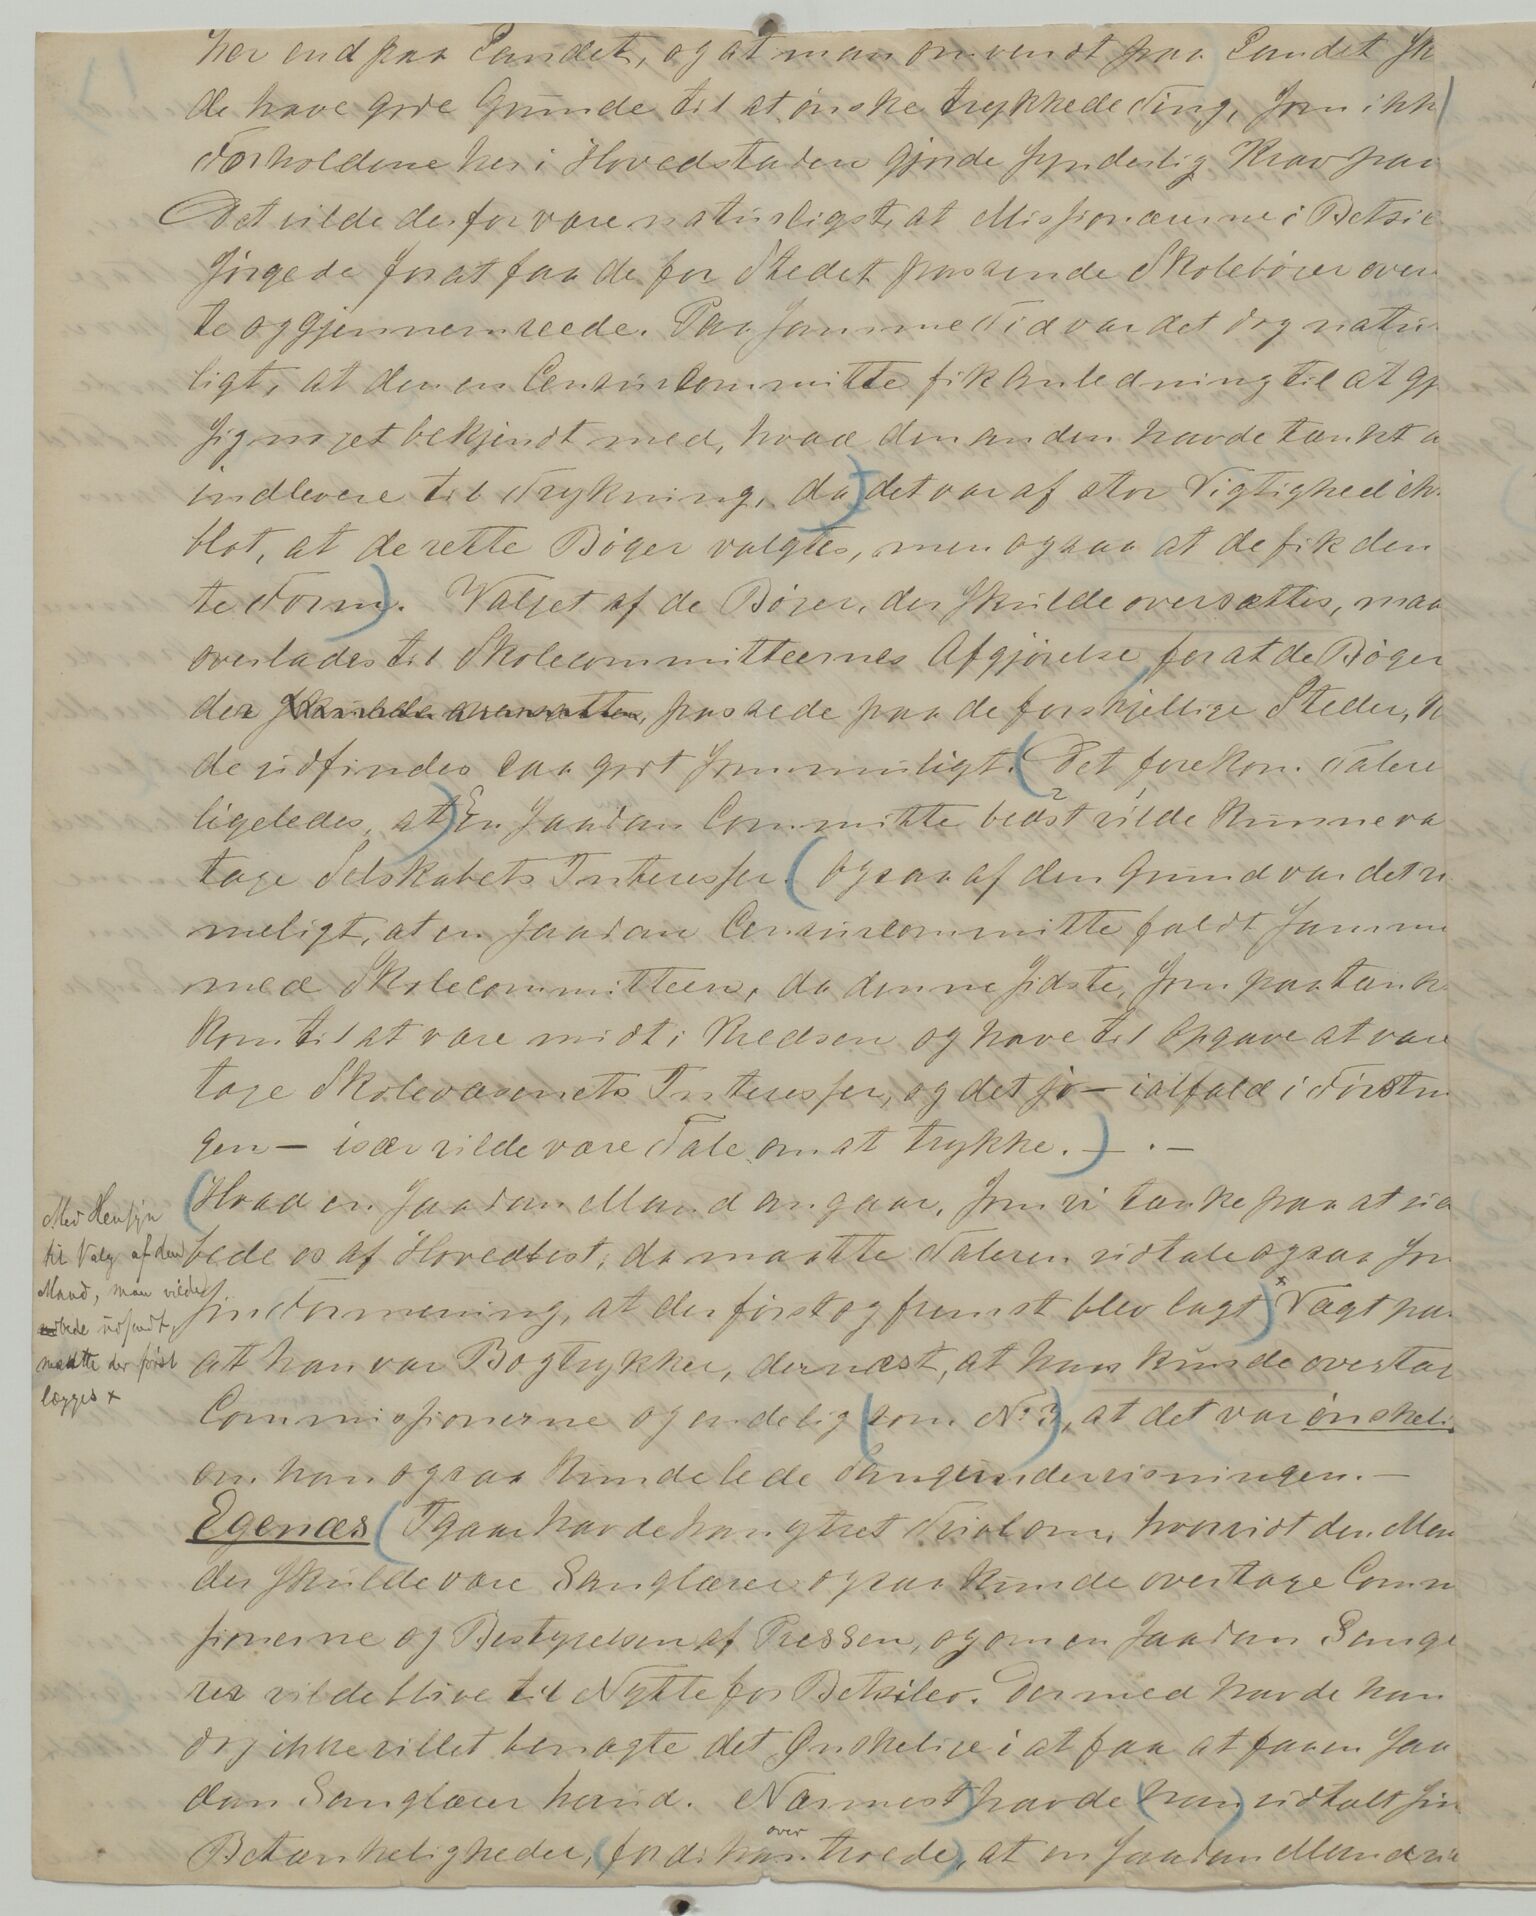 her end paa Landet, og at man omvendt paa Landet sk
de have gode Grunde til at ønske trykkede Ting, som ikk
Forholdene her i Hovedstaden gjorde synderlig Krav paa
Det vilde derfor være naturligst, at Missionærerne i Betsil
sørgede for at faa de for Stedet passende Skolebøger over
te og gjennemseede. Paa samme Tid var det dog natur
ligt, at den en Censurcommitte fik Anledning til at gj
sig noget bekjendt med, hvad den anden havde tænkt a
indlevere til Trykning, da) det var af stor Vigtighed ik
blot, at de rette Bøger valgtes, men ogsaa at de fik den
te Form). Valget af de Bøger, der skulde oversættes, maa
overlades til Skolecommitteernes Afgjørelse, for at de Bøger
der skulde oversættes, passede paa de forskjellige Steder, k
de udfindes saa godt som muligt. (Det forekom Talere
ligeledes, at) En saadan Committe bedst vilde kunne va
tage Selskabets Interesser. (ogsaa af den Grund var det ri
meligt, at en saadan Censurcommitte faldt samme
med Skolecommitteen, da denne sidste, som paatænk
kom til at være midt i Kredsen og have til Opgave at vare
tage Skolevæsenets Interesser, og det jo – ialfald i Førstn
gen – især vilde være Tale om at trykke.) – . –
(Hvad en saadan Mand angaar, som vi tænke paa at ud
bede os af Hovedbest, da maatte Taleren udtale ogsaa som
sin Formening, at der først og fremst blev lagt) x Vægt paa
at han var Bogtrykker, dernæst, at han kunde overtag
Commissionerne og endelig (som No 3), at det var ønskeli
om han ogsaa kunde lede Sangundervisningen. –
Egenæs (Igaar havde han ytret Tvivl om, hvorvidt den Man
der skulde være Sanglærer ogsaa kunde overtage Comm
sionerne og Bestyrelsen af Pressen, og om en saadan Sangl
rer vilde blive til Nytte for Betsileo. Dermed havde han
dog ikke villet benægte det Ønskelige i at faa at faa en saa
dan Sanglærer herud. Nærmest) havde (han) udtalt sin
over
Betænkeligheder, (fordi han troede), at en saadan Mand vil
Med Hensyn
til Valg af den
Mand, man vilde
bede udsendt,
maatte der først
lægges x